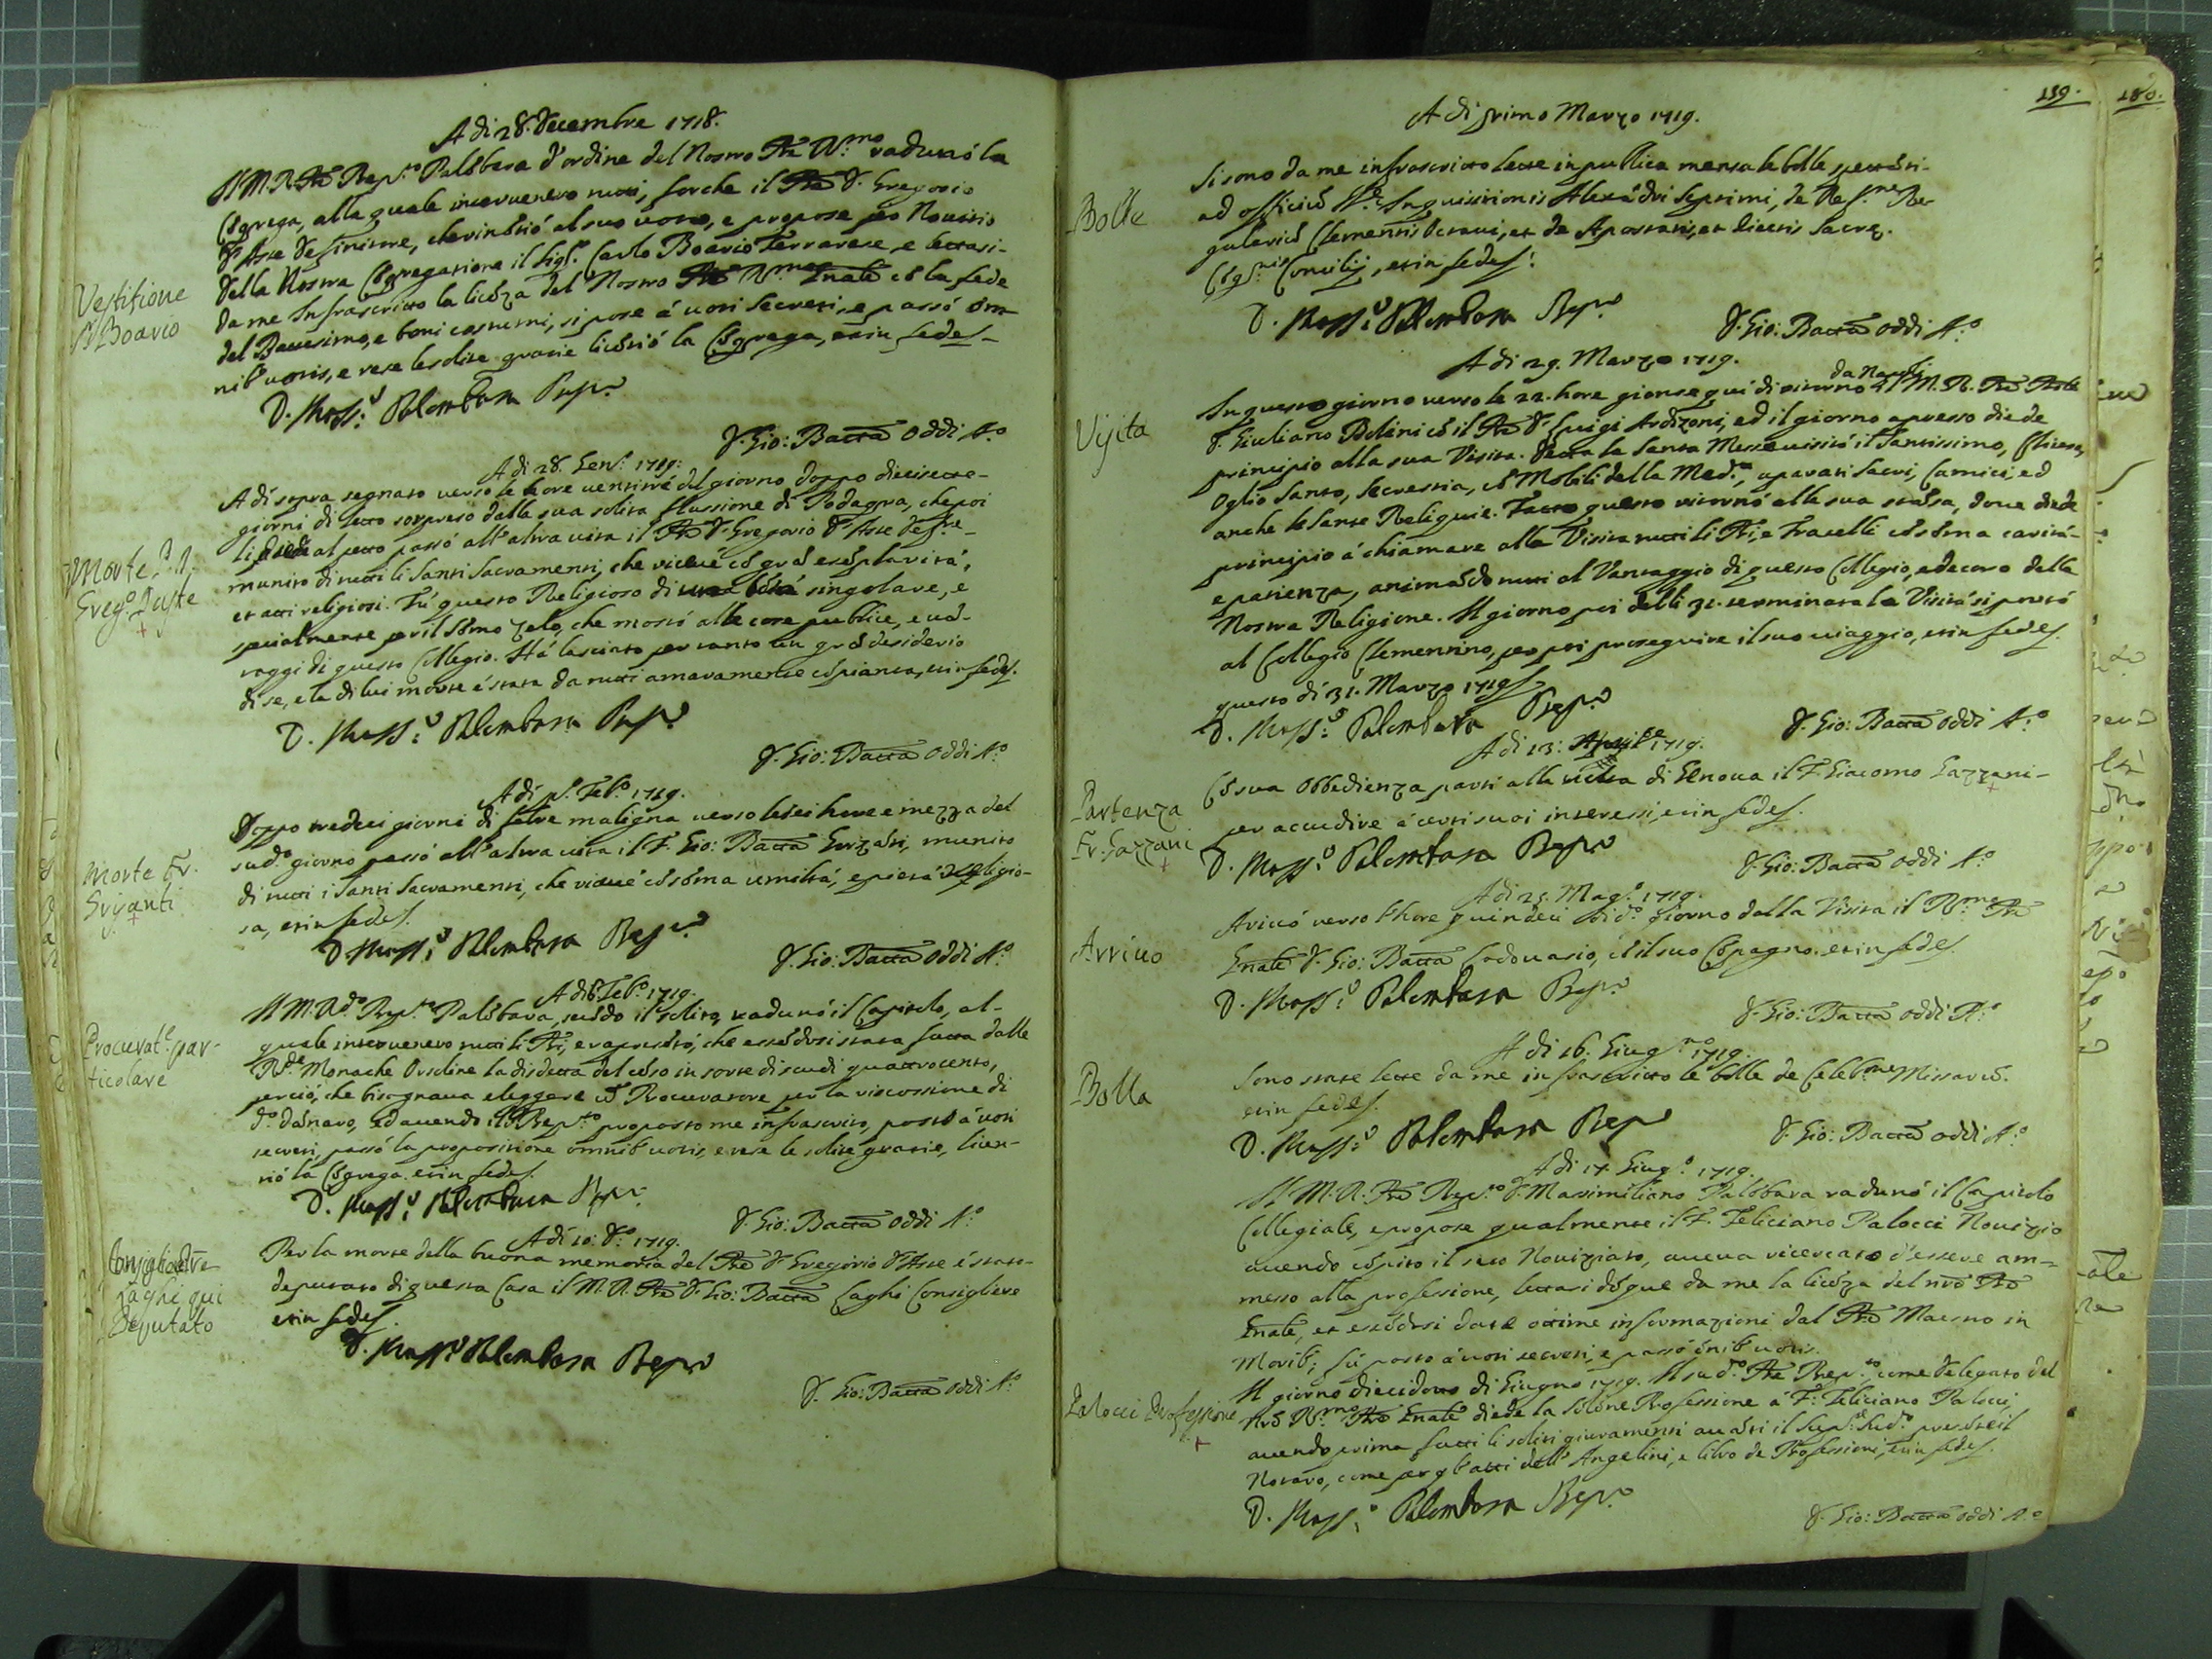 A di 28. Decembre 1718.
Il M. R. Pre Prep.to Palõbara d'ordine del Nostro Pre R.mo radunò la
Cõgrega, alla quale intervenero tutti, forche il Pre D. Gregorio
D'Aste Definitore, che rinõtiò al suo voto, e propose per Novitio
Vestitione
Boavio
della Nostra Cõgregatione il Sig.r Carlo Boavio Ferrarese, e lettasi
da me Infrascritto la licẽza del Nostro Pre R.mo Gnale cõ la fede
del Battesimo, e boni costumi, si pose á voti secreti, e passó om
nib' votis, e rese le solite gratie licẽtió la Cõgrega, et in fede
D. Mass.o Palombara Prep.to
D. Gio: Batta Oddi A.o
A di 28. Gen.o 1719.
A dì sopra segnato verso le hore ventitré del giorno doppo diecisette
giorni di letto sorpreso dalla sua solita flussione di Podagra, che poi
Morte P. D.
Greg.o Daste
li diede al petto passó all'altra vita il Pre D. Gregorio D'Aste Def.re
munito di tutti li Santi Sacramenti, che riceué cõ grã esẽplarità,
et atti religiosi. Fú questo Religioso di una bõtà singolare, e
spetialmente per il sõmo zelo, che mostró alle cose publice, e vã-
taggi di questo Collegio. Há lasciato per tanto un grã desiderio
di se, e la di lui morte é stata da tutti amaramente cõpianta, et in fede.
D. Mass.o Palombara Prep.to
D. Gio: Batta Oddi A.o
A di p.o Feb.o 1719.
Doppo tredici giorni di febre maligna verso le sei hore e mezza del
sud.o giorno passó all'altra vita il F. Gio: Batta Grizãti, munito
Morte Fr.
Grisanti
di tutti i Santi Sacramenti, che riceué cõ sõma umiltá, e pietá religio-
sa, et in fede.
D. Mass.o Palombara Prep.to
D. Gio: Batta Oddi A.o
A di 6 Feb.o 1719.
Il M. R.do Prep.to Palõbara, secõdo il solito, radunó il Capitolo, al-
Procurat.e par-
ticolare
quale intervenero tutti li Pri, e rapresẽtó, che essẽdosi stata fatta dalle
R.de Monache Orsoline la disdetta del cẽso in sorte di scudi quattrocento,
perció, che bisognava eleggere ũ Procuratore per la riscossione di
d.o dãnaro, ed avendo il Prep.to proposto me infrascritto, posto á voti
secreti, passó la propositione omnib' votis, e rese le solite gratie, licen-
tió la Cõgrega et in fede.
D. Mass.o Palombara Prep.to
D. Gio: Batta Oddi A.o
A di 10: d.o 1719.
Consigliere
Caghi qui
Deputato
Per la morte della buona memoria del Pre D. Gregorio D'Aste é stato
deputato di questa Casa il M. R. Pre D. Gio: Batta Caghi Consigliere
et in fede.
D. Mass.o Palombara Prep.to
D. Gio: Batta Oddi A.o
159.
180.
A di primo Marzo 1719.
Bolle
Si sono da me infrascritto lette in publica mensa le bolle spettãti
ad officiũ S.te Inquisitionis Alexãdri Septimi, de Ref.ne Re-
gulariũ Clementis Octavi, et de Apostatis, et Eiectis Sacrę
Cõg.nis Concilij, et in fede.
D. Mass.o Palombara Prep.to
D. Gio: Batta Oddi A.o
A di 29. Marzo 1719.
Visita
In questo giorno verso le 22. hore gionse quí di ritorno da Napoli il M. R. Pre Prole
D. Giuliano Bolini cõ il Pre D. Luigi Ardizoni, ed il giorno apresso diede
principio alla sua Visita. Detta la Santa Messa visitó il Santissimo, Chiesa,
Oglio Santo, Secrestia, cõ Mobili della Med.a, aparati Sacri, Camici, ed
anche le Sante Religuie. Fatto questo ritornó alla sua stãsa, doue diede
principio á chiamare alla Visita tutti li Pri, e Fratelli cõ sõma caritá
e patienza, animãdo tutti al Vantaggio di questo Collegio, e decoro della
Nostra Religione. Il giorno poi delli 31. terminata la Visita si portó
al Collegio Clementino, per poi proseguire il suo viaggio, et in fede
questo dí 31. Marzo 1719.
D. Mass.o Palombara Prep.to
D. Gio: Batta Oddi A.o
A di 13: Aprile 1719.
Partenza
Fr. Gazzani
Cõ sua obbedienza partì alla volta di Genova il F. Giacomo Gazzani
per accudire á certi suoi interessi, et in fede.
D. Mass.o Palombara Prep.to
D. Gio: Batta Oddi A.o
A di 25. Mag.o 1719.
Arriuo
Arrivó verso l'hore quindeci di d.o giorno dalla Visita il R.mo Pre
Gnale D. Gio: Batta Lodovasio, cõ il suo Cõpagno. et in fede
D. Mass.o Palombara Prep.to
D. Gio: Batta Oddi A.o
A di 16. Giug.no 1719.
Bolla
Sono state lette da me infrascritto le bolle de Celeb.ne Missarũ.
et in fede.
D. Mass.o Palombara Prep.to
D. Gio: Batta Oddi A.o
A di 17. Giug.o 1719.
Il M. R. Pre Prep.to D. Massimiliano Palõbara radunó il Capitolo
Collegiale, e propose qualmente il F. Feliciano Palocci Novizio
avendo cõpito il suo Noviziato, aveva ricercato d'essere am=
messo alla professione, lettasi dũque da me la licẽza del nrõ Pre
Gnale, et essẽdosi date ottime informazioni dal Pre Maestro in
Morib; fú posto á voti secreti, e passó õnib' votis.
Palocci Professione
Il giorno diecidotto di Giugno 1719. Il sud.o Pre Prep.to, come Delegato del
nrõ R.mo Pre Gnale diede la solẽne Professione á F. Feliciano Palocci,
avendo prima fatti li soliti giuramenti avãti il Prep.to Sud.o presẽte il
Notaro, come per gl'atti dell'Angelini, e libro de Professioni, et in fede.
D. Mass.o Palombara Prep.to
D. Gio: Batta Oddi A.o